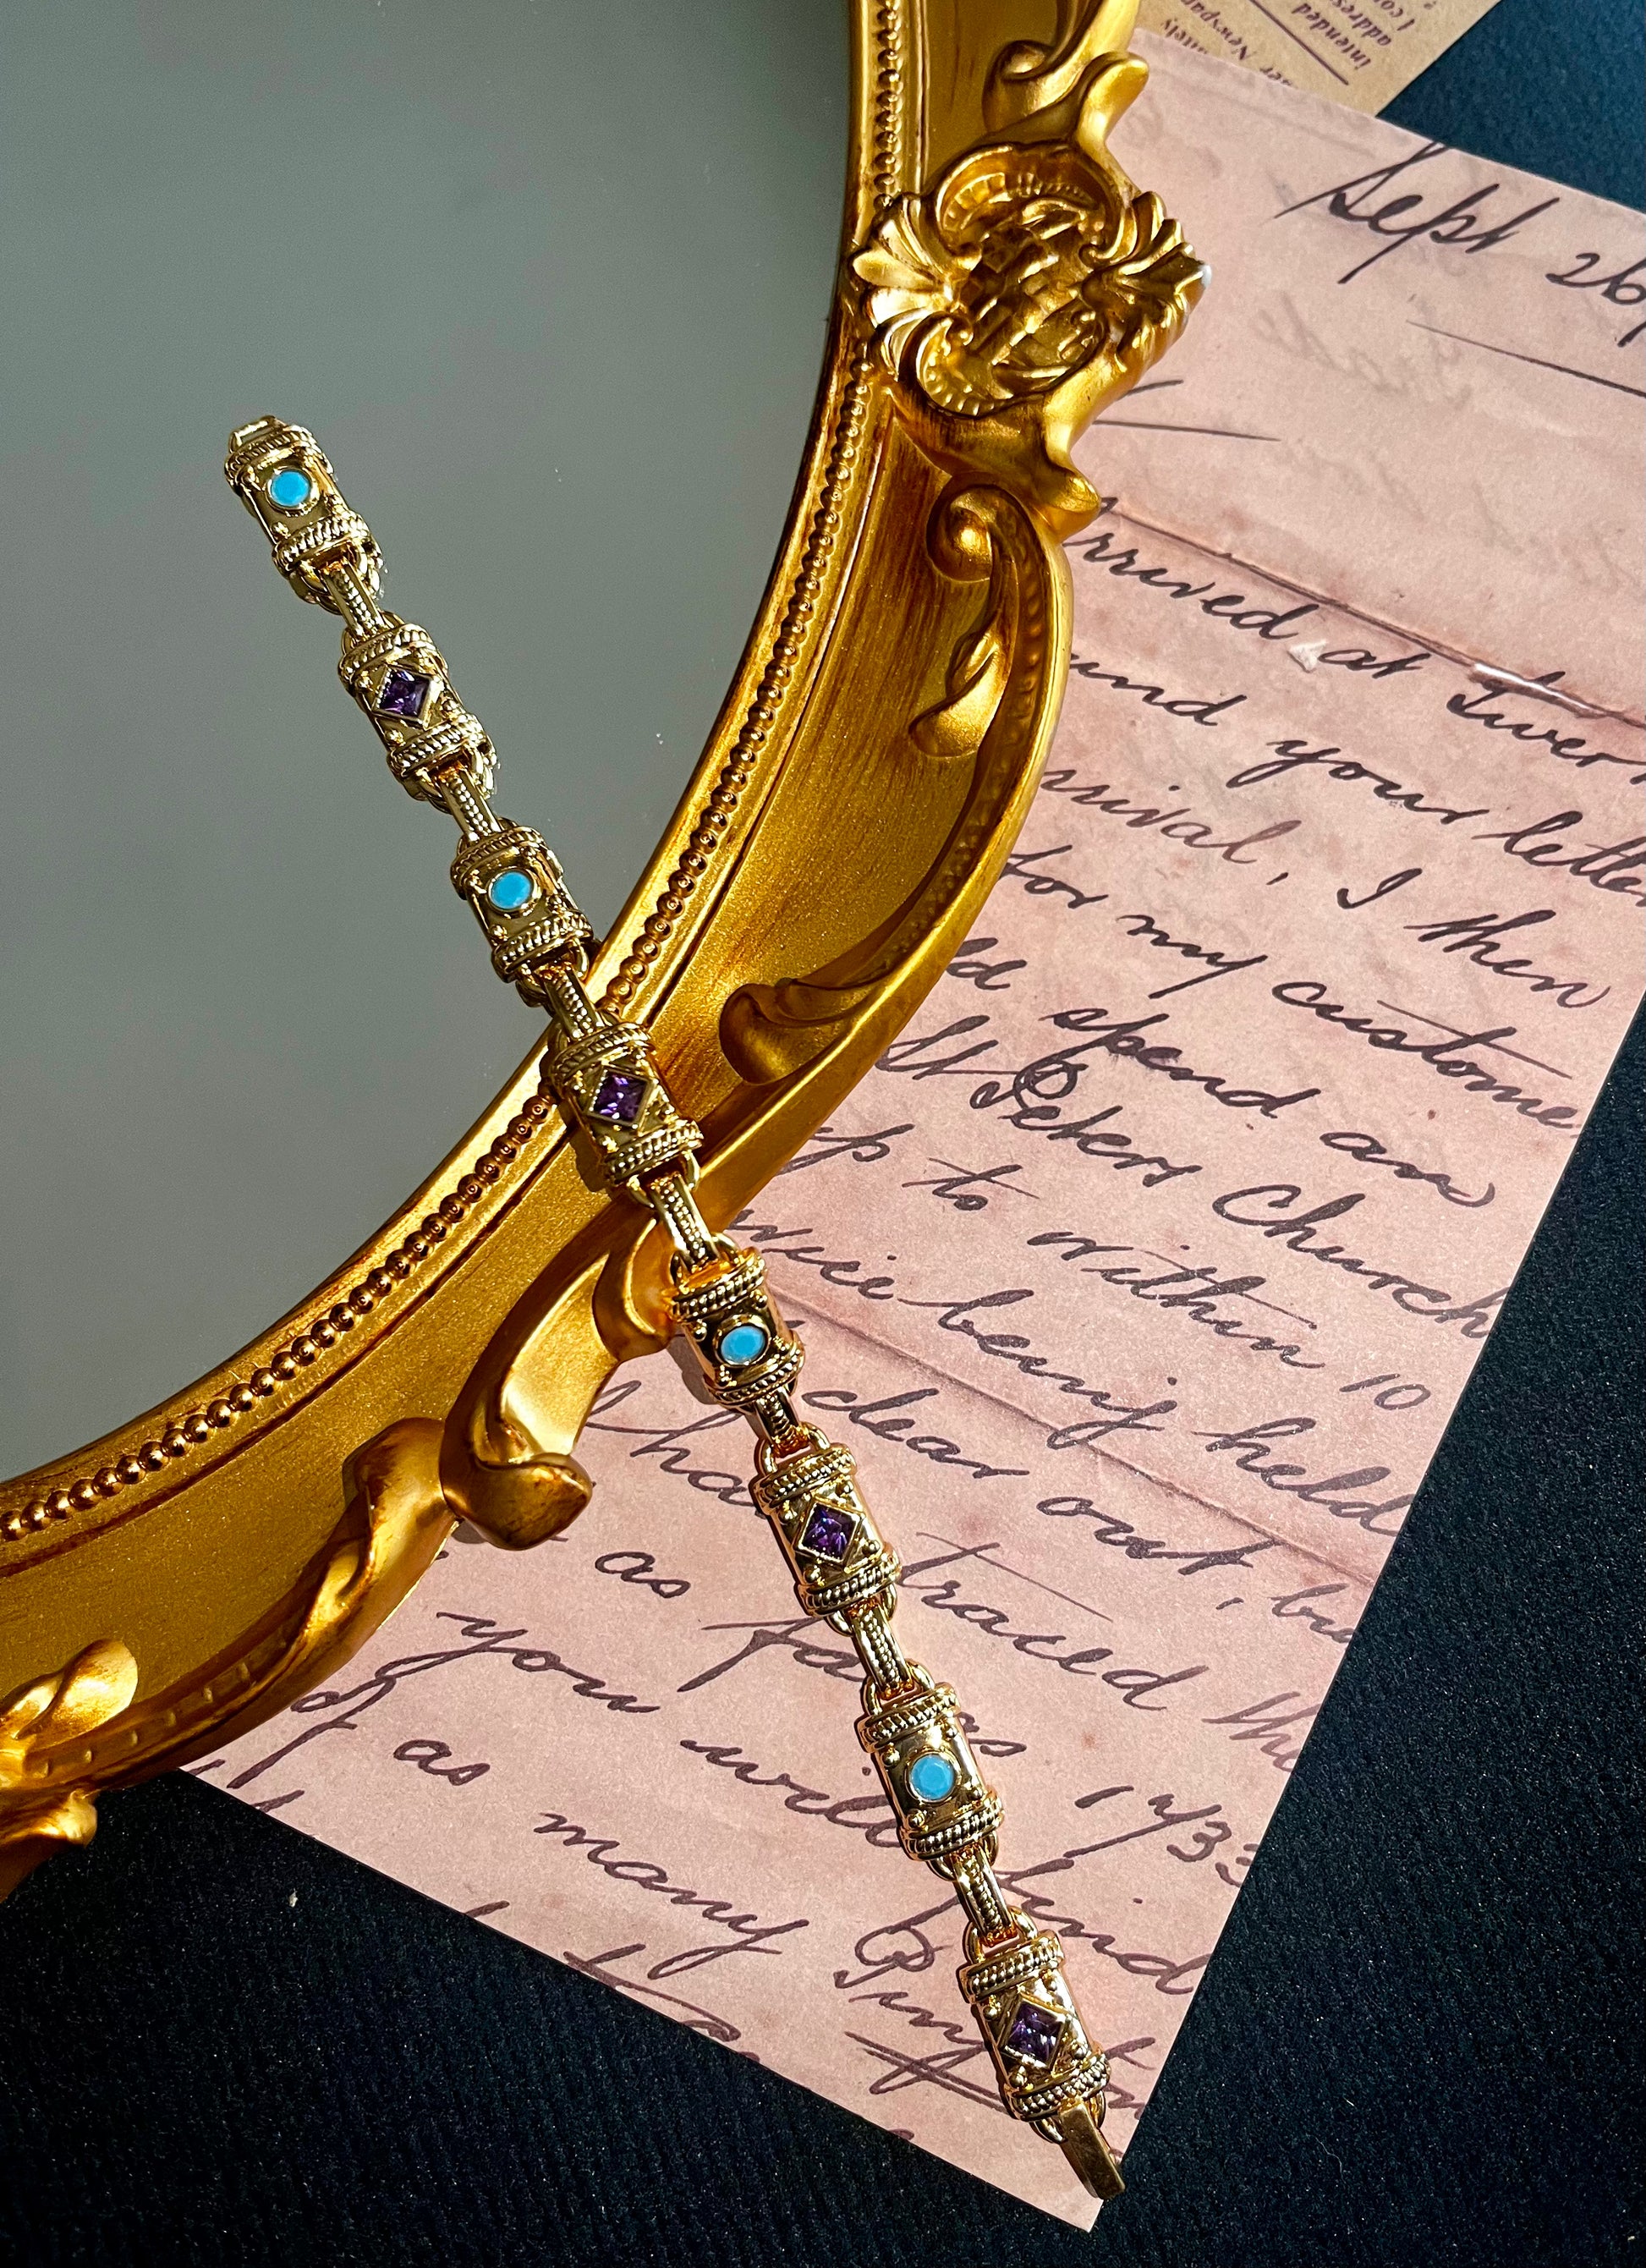 I co
addres
intended
itely
er Newspap
Sept 26
arrived at Liver
und your letter
arrival, I then
for my custome
ld spend an
St Peters Church
ep to within 10
vice being held
clear out, bu
I ha traced the
as far as 1733
you will find
of as many